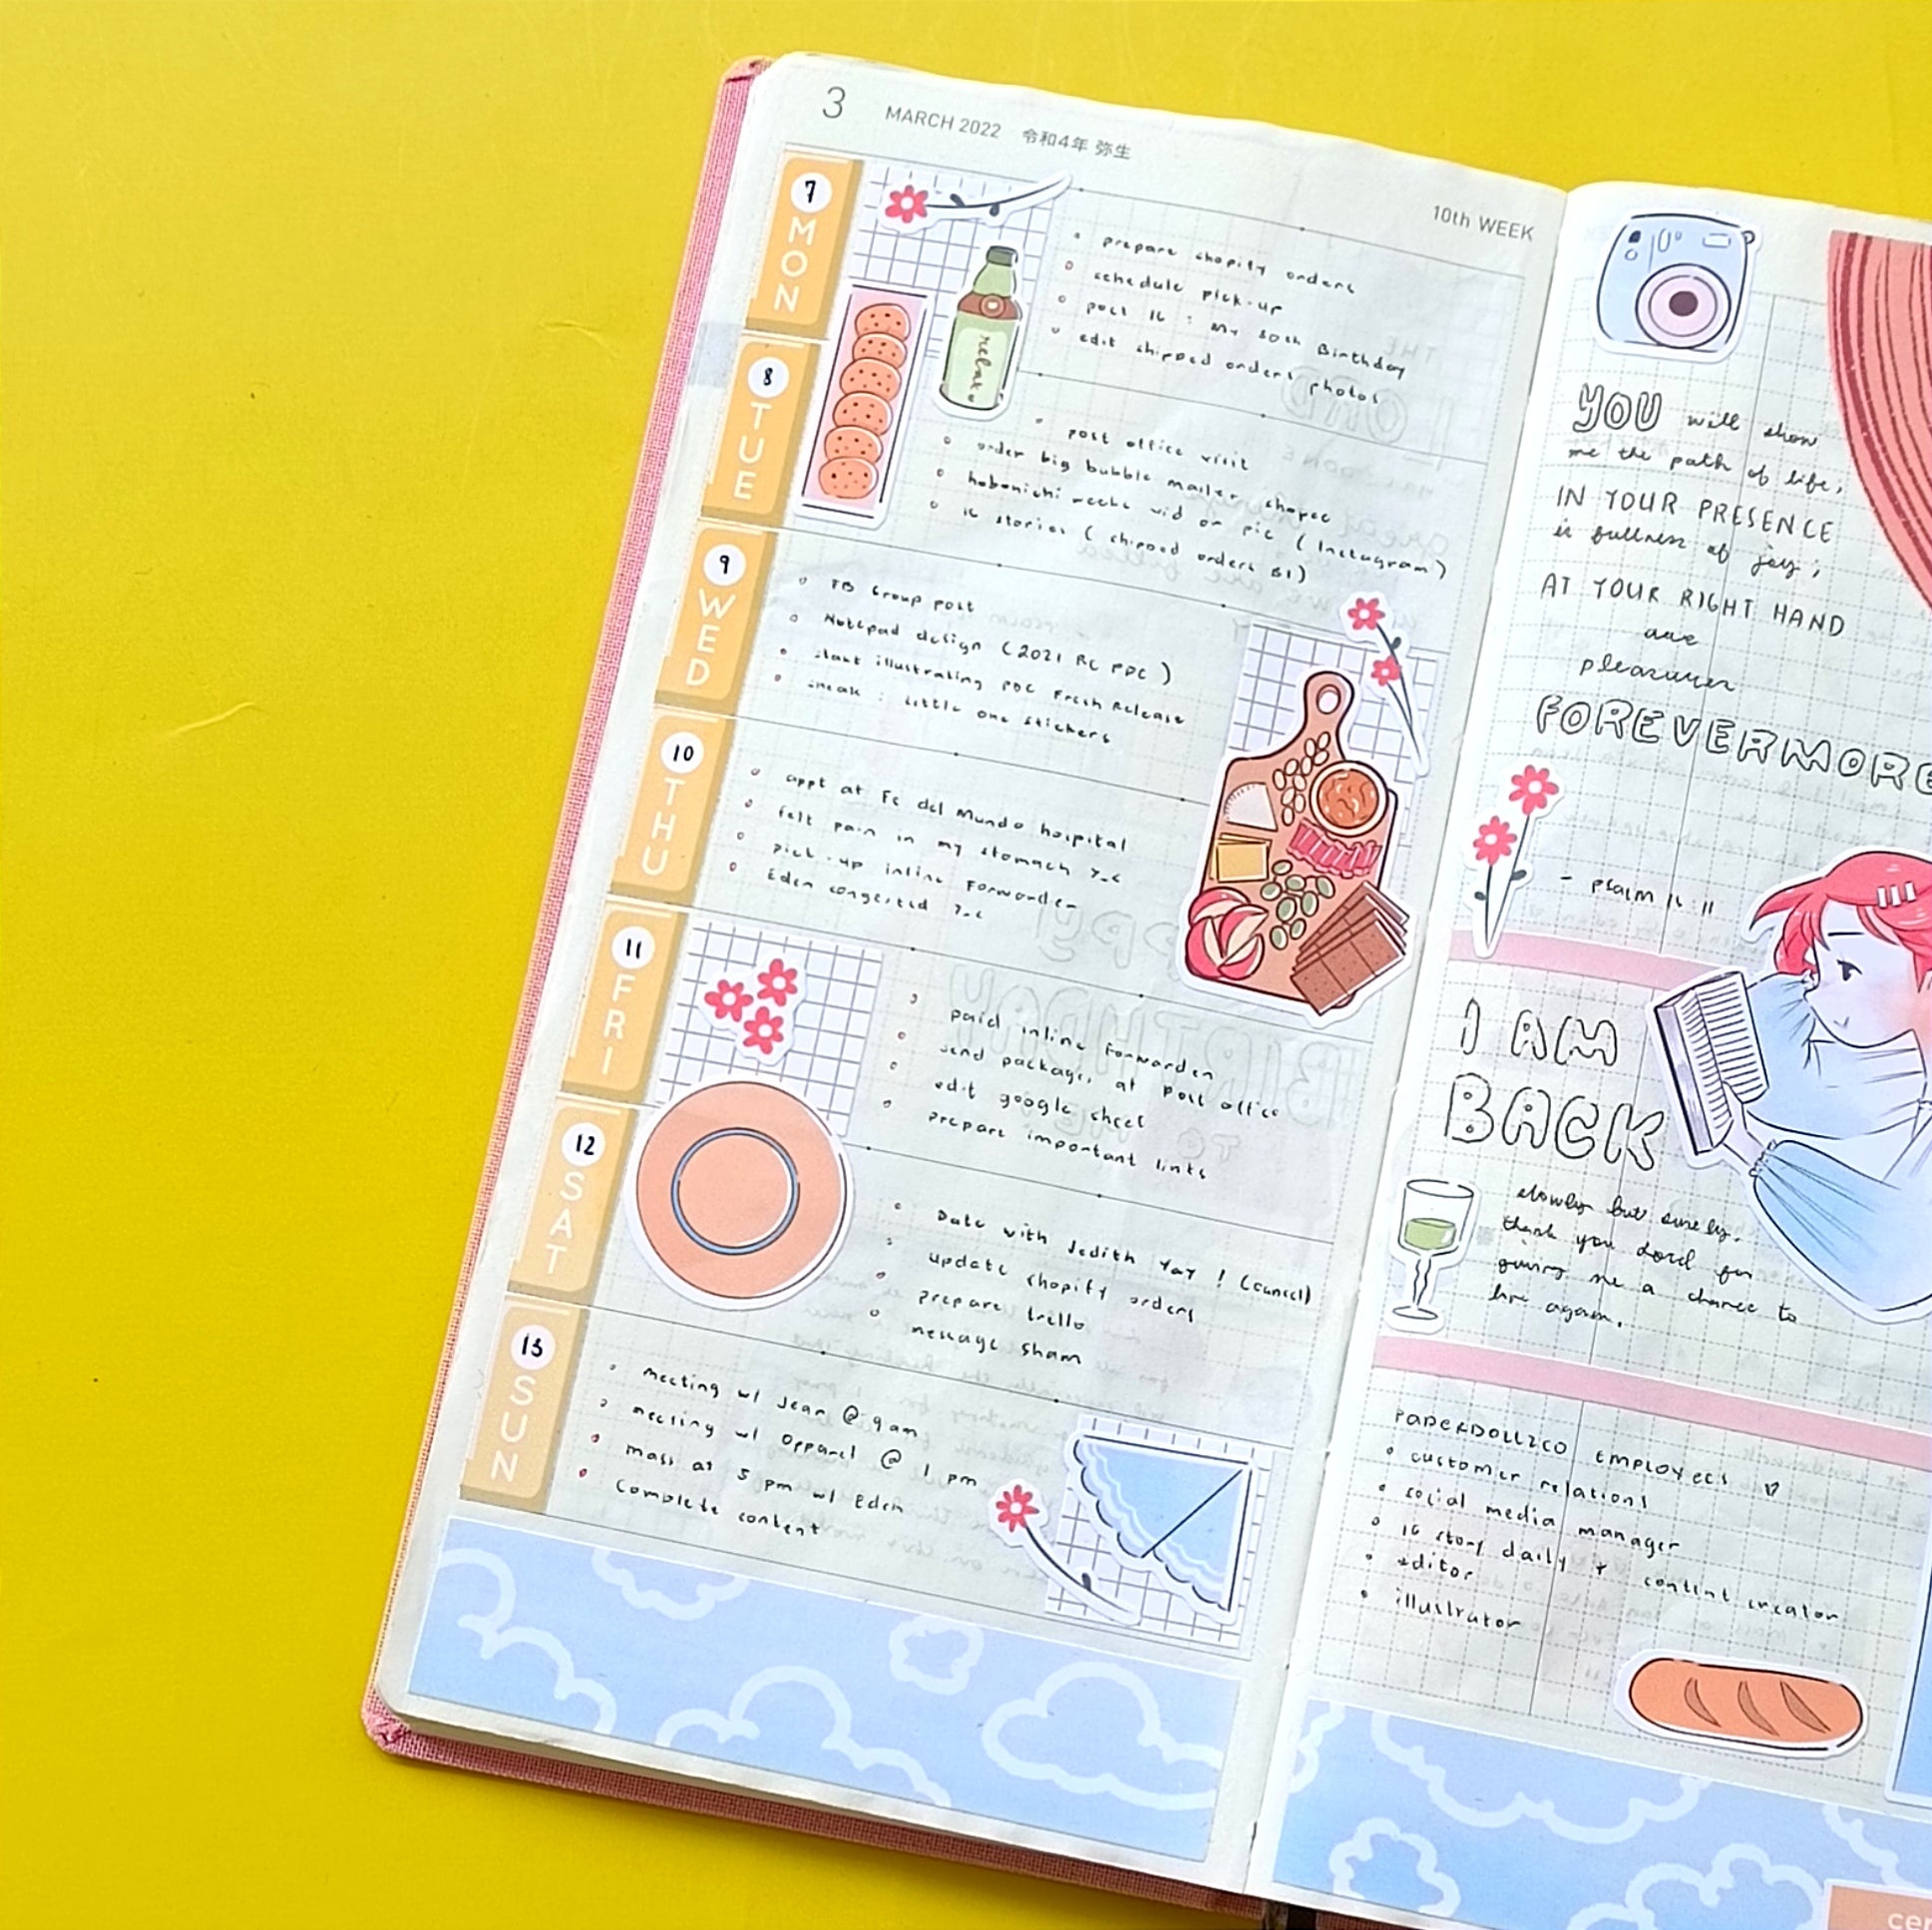 3 MARCH 2022 令和4年 弥生
10th WEEK
7
MON
relax
prepare shopify orders
schedule pick-up
post IG : My 30th Birthday
edit shipped orders photos
8
TUE
post office visit
order big bubble mailer shopee
hobonichi weeks vid or pic (Instagram)
IG stories (shipped orders 81)
9
WED
FB Group post
Notepad design (2021 RC PDC)
start illustrating PDC Fresh Release
sneak : Little one stickers
10
THU
appt at Fe del Mundo hospital
felt pain in my stomach >.<
pick-up inline Forwarder
Eden congested >.<
11
FRI
paid inline Forwarder
send packages at post office
edit google sheet
prepare important links
12
SAT
Date with Jedith Yay ! (cancel)
update shopify orders
prepare trello
message sham
13
SUN
meeting w/ Jean @ 9 am
meeting w/ Opparel @ 1 pm
mass at 5 pm w/ Eden
Complete content
YOU will show
me the path of life,
IN YOUR PRESENCE
is fullness of joy;
AT YOUR RIGHT HAND
are
pleasures
FOREVERMORE
- psalm 16:11
I AM
BACK
slowly but surely.
thank you Lord for
giving me a chance to
live again.
PAPERDOLLZCO EMPLOYEES
customer relations
social media manager
IG story daily + content creator
editor
illustrator